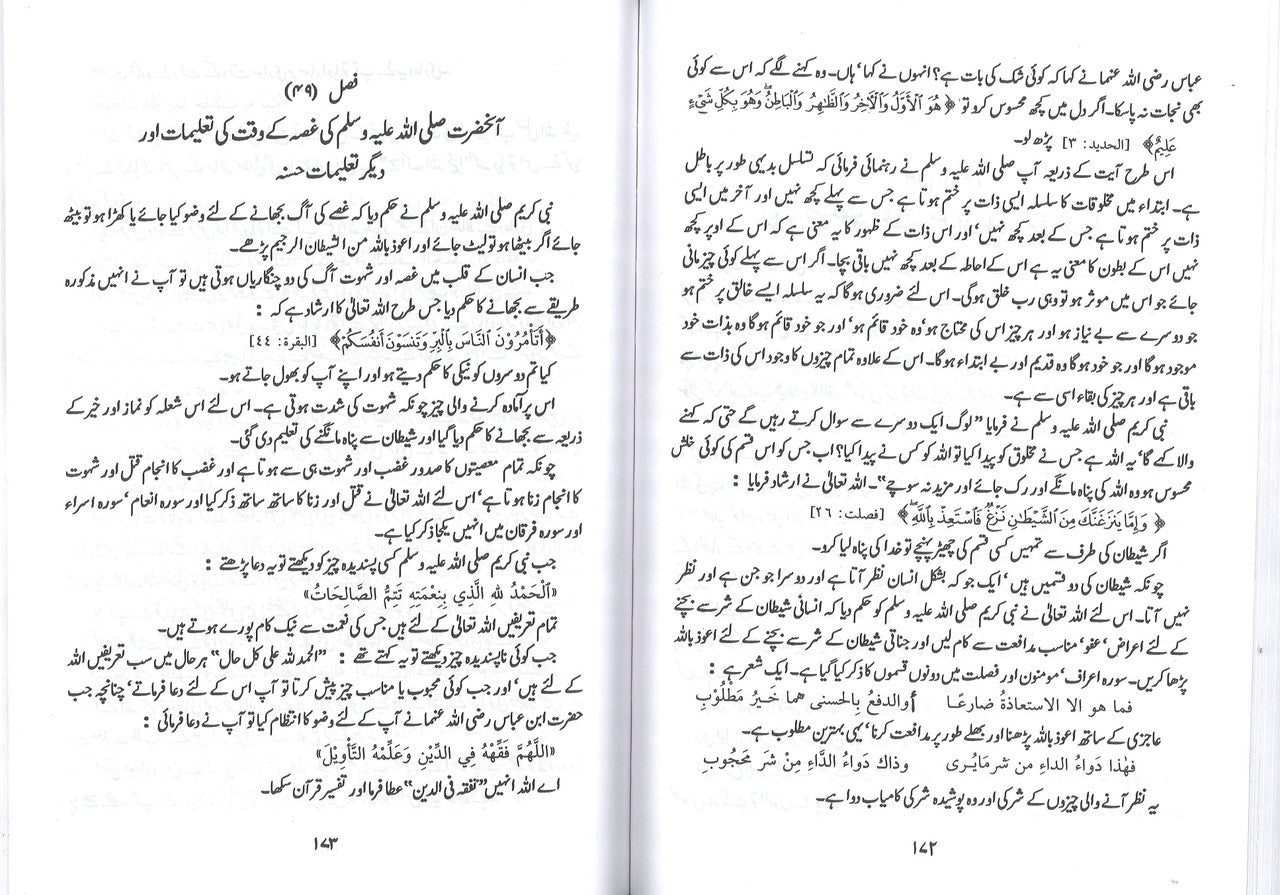 عباس رضی اللہ عنہما نے کہا کہ کوئی شک کی بات ہے؟ انہوں نے کہا‘ ہاں۔ وہ کہنے لگے کہ اس سے کوئی
بھی نجات نہ پا سکا۔ اگر دل میں کچھ محسوس کرو تو ﴿ هُوَ ٱلْأَوَّلُ وَٱلْآخِرُ وَٱلظَّٰهِرُ وَٱلْبَاطِنُ ۖ وَهُوَ بِكُلِّ شَىْءٍ
عَلِيمٌ﴾ [الحديد: ٣] پڑھ لو۔
اس طرح آیت کے ذریعہ آپ صلی اللہ علیہ وسلم نے رہنمائی فرمائی کہ تسلسل بدیہی طور پر باطل
ہے۔ ابتداء میں مخلوقات کا سلسلہ ایسی ذات پر ختم ہوتا ہے جس سے پہلے کچھ نہیں اور آخر میں ایسی
ذات پر ختم ہوتا ہے جس کے بعد کچھ نہیں‘ اور اس ذات کے ظہور کا یہ معنی ہے کہ اس کے اوپر کچھ
نہیں اس کے بطون کا معنی یہ ہے اس کے احاطہ کے بعد کچھ نہیں باقی بچا۔ اگر اس سے پہلے کوئی چیز مانی
جائے جو اس میں موثر ہو تو وہی رب خلق ہوگی۔ اس لئے ضروری ہوگا کہ یہ سلسلہ ایسے خالق پر ختم ہو
جو دوسرے سے بے نیاز ہو اور ہر چیز اس کی محتاج ہو‘ وہ خود قائم ہو‘ اور جو خود قائم ہوگا وہ بذات خود
موجود ہوگا اور جو خود ہوگا وہ قدیم اور بے ابتداء ہوگا۔ اس کے علاوہ تمام چیزوں کا وجود اس کی ذات سے
باقی ہے اور ہر چیز کی بقاء اسی سے ہے۔
نبی کریم صلی اللہ علیہ وسلم نے فرمایا ”لوگ ایک دوسرے سے سوال کرتے رہیں گے حتی کہ کہنے
والا کہے گا‘ یہ اللہ ہے جس نے مخلوق کو پیدا کیا تو اللہ کو کس نے پیدا کیا؟ اب جس کو اس قسم کی کوئی خلش
محسوس ہو وہ اللہ کی پناہ مانگے اور رک جائے اور مزید نہ سوچے“۔ اللہ تعالیٰ نے ارشاد فرمایا :
﴿ وَإِمَّا يَنزَغَنَّكَ مِنَ ٱلشَّيْطَٰنِ نَزْغٌ فَٱسْتَعِذْ بِٱللَّهِ ۖ﴾ [فصلت: ٢٦]
اگر شیطان کی طرف سے تمہیں کسی قسم کی چھیڑ پہنچے تو خدا کی پناہ لیا کرو۔
چونکہ شیطان کی دو قسمیں ہیں‘ ایک جو کہ بشکل انسان نظر آتا ہے اور دوسرا جو جن ہے اور نظر
نہیں آتا۔ اس لئے اللہ تعالیٰ نے نبی کریم صلی اللہ علیہ وسلم کو حکم دیا کہ انسانی شیطان کے شر سے بچنے
کے لئے اعراض‘ عفو‘ مناسب مدافعت سے کام لیں اور جناتی شیطان کے شر سے بچنے کے لئے اعوذ باللہ
پڑھا کریں۔ سورہ اعراف‘ مومنون اور فصلت میں دونوں قسموں کا ذکر کیا گیا ہے۔ ایک شعر ہے :
فما هو الا الاستعاذةُ ضارعًا أوالدفعُ بِالحسنى هما خَيرُ مَطْلُوْبِ
عاجزی کے ساتھ اعوذ باللہ پڑھنا اور بھلے طور پر مدافعت کرنا‘ یہی بہترین مطلوب ہے۔
فهٰذا دَواءُ الداءِ من شر مايُرى وذاك دَواءُ الدَّاءِ مِنْ شَر مَحجُوبِ
یہ نظر آنے والی چیزوں کے شر کی اور وہ پوشیدہ شر کی کامیاب دوا ہے۔
۱۷۲
فصل (۴۹)
آنحضرت صلی اللہ علیہ وسلم کی غصہ کے وقت کی تعلیمات اور
دیگر تعلیمات حسنہ
نبی کریم صلی اللہ علیہ وسلم نے حکم دیا کہ غصے کی آگ بجھانے کے لئے وضو کیا جائے یا کھڑا ہو تو بیٹھ
جائے اگر بیٹھا ہو تو لیٹ جائے اور اعوذ باللہ من الشیطان الرجیم پڑھے۔
جب انسان کے قلب میں غصہ اور شہوت آگ کی دو چنگاریاں ہوتی ہیں تو آپ نے انہیں مذکورہ
طریقے سے بجھانے کا حکم دیا جس طرح اللہ تعالیٰ کا ارشاد ہے کہ :
﴿أَتَأْمُرُوْنَ ٱلنَّاسَ بِٱلْبِرِّ وَتَنسَوْنَ أَنفُسَكُمْ﴾ [البقرة: ٤٤]
کیا تم دوسروں کو نیکی کا حکم دیتے ہو اور اپنے آپ کو بھول جاتے ہو۔
اس پر آمادہ کرنے والی چیز چونکہ شہوت کی شدت ہوتی ہے۔ اس لئے اس شعلہ کو نماز اور خیر کے
ذریعہ سے بجھانے کا حکم دیا گیا اور شیطان سے پناہ مانگنے کی تعلیم دی گئی۔
چونکہ تمام معصیتوں کا صدور غضب اور شہوت ہی سے ہوتا ہے اور غضب کا انجام قتل اور شہوت
کا انجام زنا ہوتا ہے‘ اس لئے اللہ تعالیٰ نے قتل اور زنا کا ساتھ ساتھ ذکر کیا اور سورہ انعام‘ سورہ اسراء
اور سورہ فرقان میں انہیں یکجا ذکر کیا ہے۔
جب نبی کریم صلی اللہ علیہ وسلم کسی پسندیدہ چیز کو دیکھتے تو یہ دعا پڑھتے :
«اَلْحَمْدُ للهِ الَّذِي بِنِعْمَتِهِ تَتِمُّ الصَّالِحَاتُ»
تمام تعریفیں اللہ تعالیٰ کے لئے ہیں‘ جس کی نعمت سے نیک کام پورے ہوتے ہیں۔
جب کوئی ناپسندیدہ چیز دیکھتے تو یہ کہتے تھے : ”الحمد للہ علی کل حال“ ہر حال میں سب تعریفیں اللہ
کے لئے ہیں‘ اور جب کوئی محبوب یا مناسب چیز پیش کرتا تو آپ اس کے لئے دعا فرماتے‘ چنانچہ جب
حضرت ابن عباس رضی اللہ عنہما نے آپ کے لئے وضو کا انتظام کیا تو آپ نے دعا فرمائی :
«اللَّهُمَّ فَقِّهْهُ فِي الدِّيْنِ وَعَلِّمْهُ التَّأْوِيْلَ»
اے اللہ انہیں ”تفقہ فی الدین“ عطا فرما اور تفسیر قرآن سکھا۔
۱۷۳